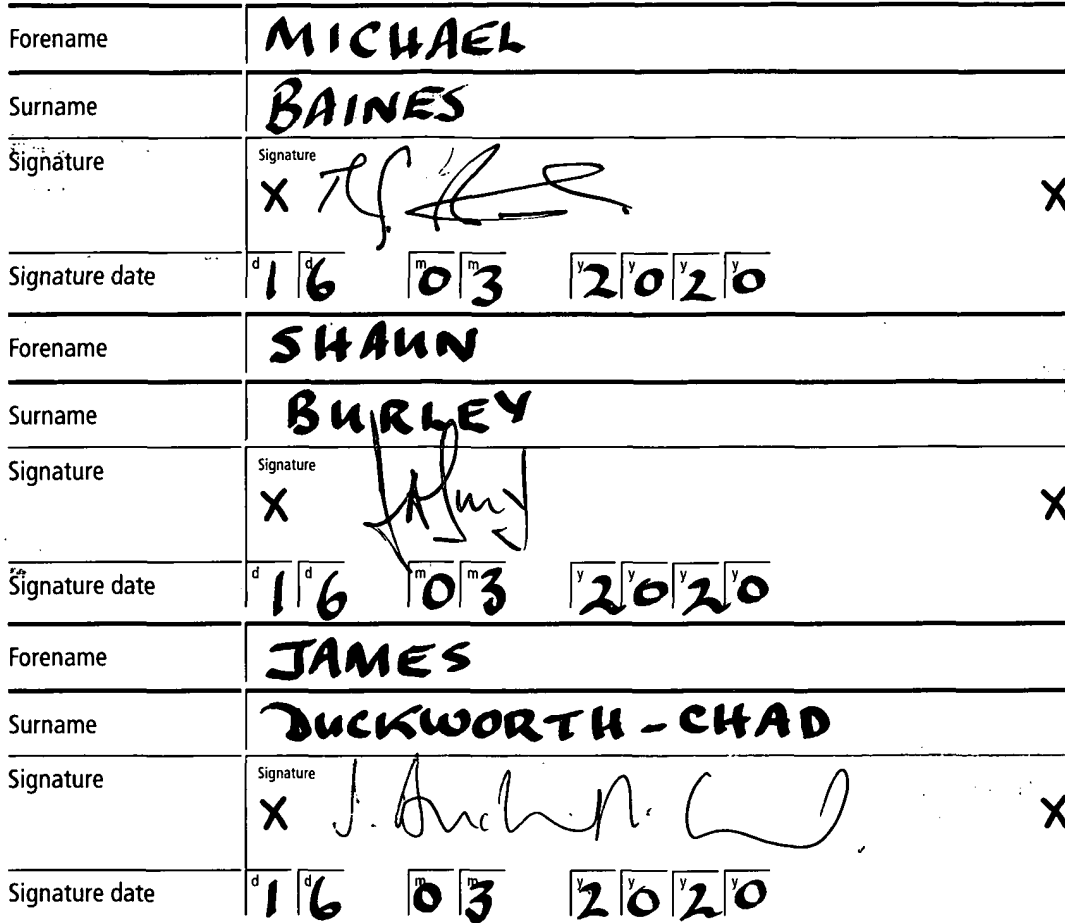 Forename MICHAEL
Surname BAINES
Signature Signature
X X
Signature date d 1 d 6 m 0 m 3 y 2 y 0 y 2 y 0
Forename SHAUN
Surname BURLEY
Signature Signature
X X
Signature date d 1 d 6 m 0 m 3 y 2 y 0 y 2 y 0
Forename JAMES
Surname DUCKWORTH-CHAD
Signature Signature
X X
Signature date d 1 d 6 m 0 m 3 y 2 y 0 y 2 y 0